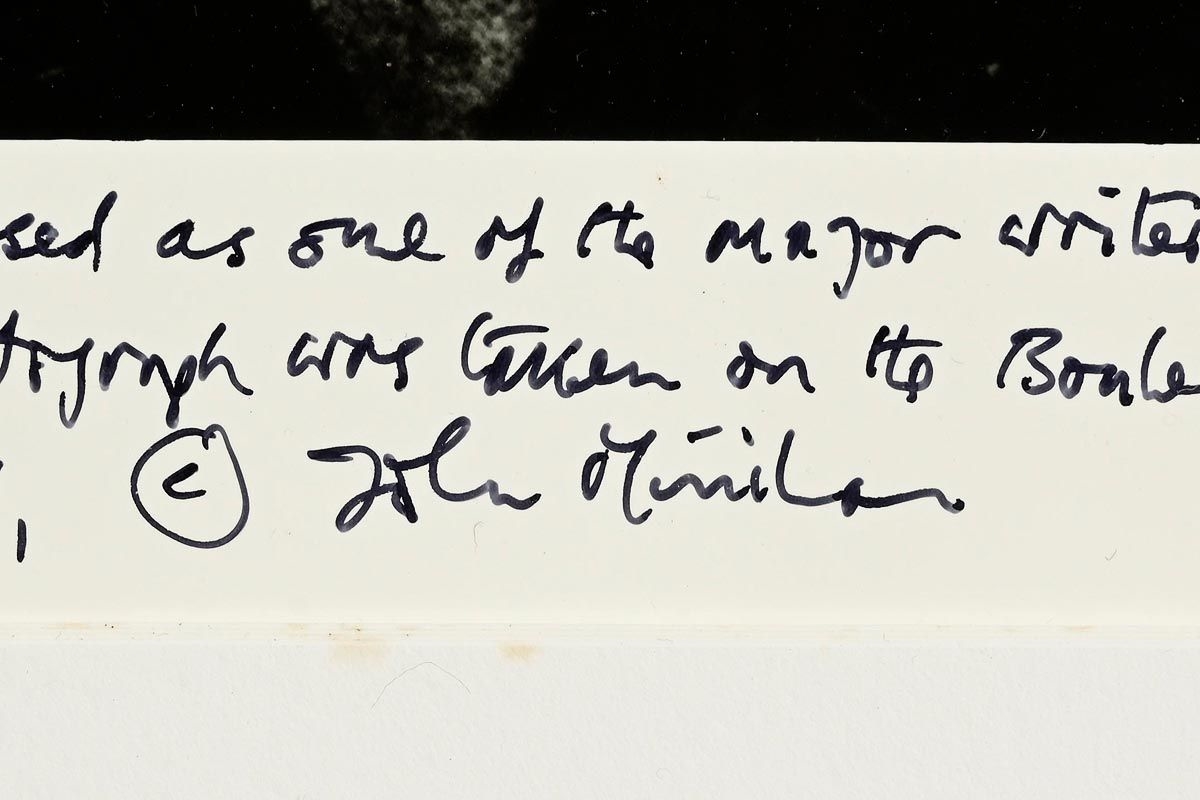 sed as one of the major writer
tograph was taken on the Boule
© John Minihan